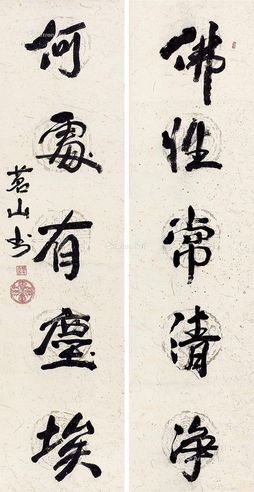 佛性常清净
何處有塵埃
茗山书